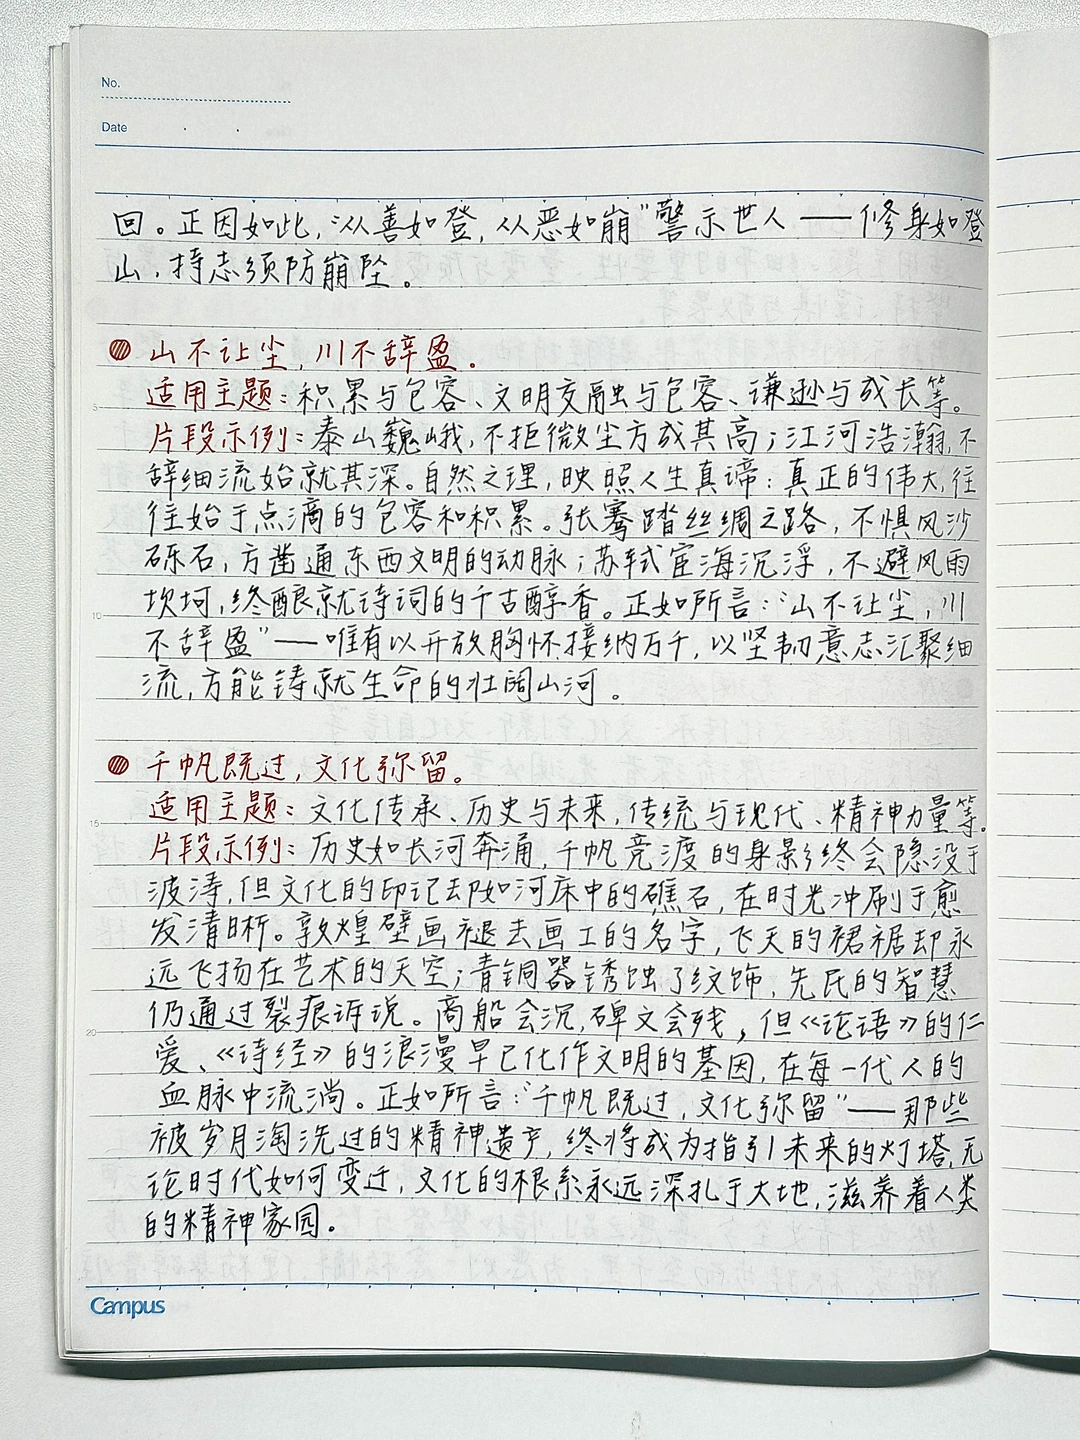 No.
Date
回。正因如此,“从善如登,从恶如崩”警示世人——修身如登
山,持志须防崩坠。
山不让尘,川不辞盈。
适用主题:积累与包容、文明交融与包容、谦逊与成长等。
片段示例:泰山巍峨,不拒微尘方成其高;江河浩瀚,不
辞细流始就其深。自然之理,映照人生真谛:真正的伟大,往
往始于点滴的包容和积累。张骞踏丝绸之路,不惧风沙
砾石,方凿通东西文明的动脉;苏轼宦海沉浮,不避风雨
坎坷,终酿就诗词的千古醇香。正如所言:“山不让尘,川
不辞盈”——唯有以开放胸怀接纳万千,以坚韧意志汇聚细
流,方能铸就生命的壮阔山河。
千帆既过,文化弥留。
适用主题:文化传承、历史与未来,传统与现代、精神力量等。
片段示例:历史如长河奔涌,千帆竞渡的身影终会隐没于
波涛,但文化的印记却如河床中的礁石,在时光冲刷于愈
发清晰。敦煌壁画褪去画工的名字,飞天的裙裾却永
远飞扬在艺术的天空;青铜器锈蚀了纹饰,先民的智慧
仍通过裂痕诉说。商船会沉,碑文会残,但《论语》的仁
爱、《诗经》的浪漫早已化作文明的基因,在每一代人的
血脉中流淌。正如所言:“千帆既过,文化弥留”——那些
被岁月淘洗过的精神遗产,终将成为指引未来的灯塔,无
论时代如何变迁,文化的根系永远深扎于大地,滋养着人类
的精神家园。
Campus